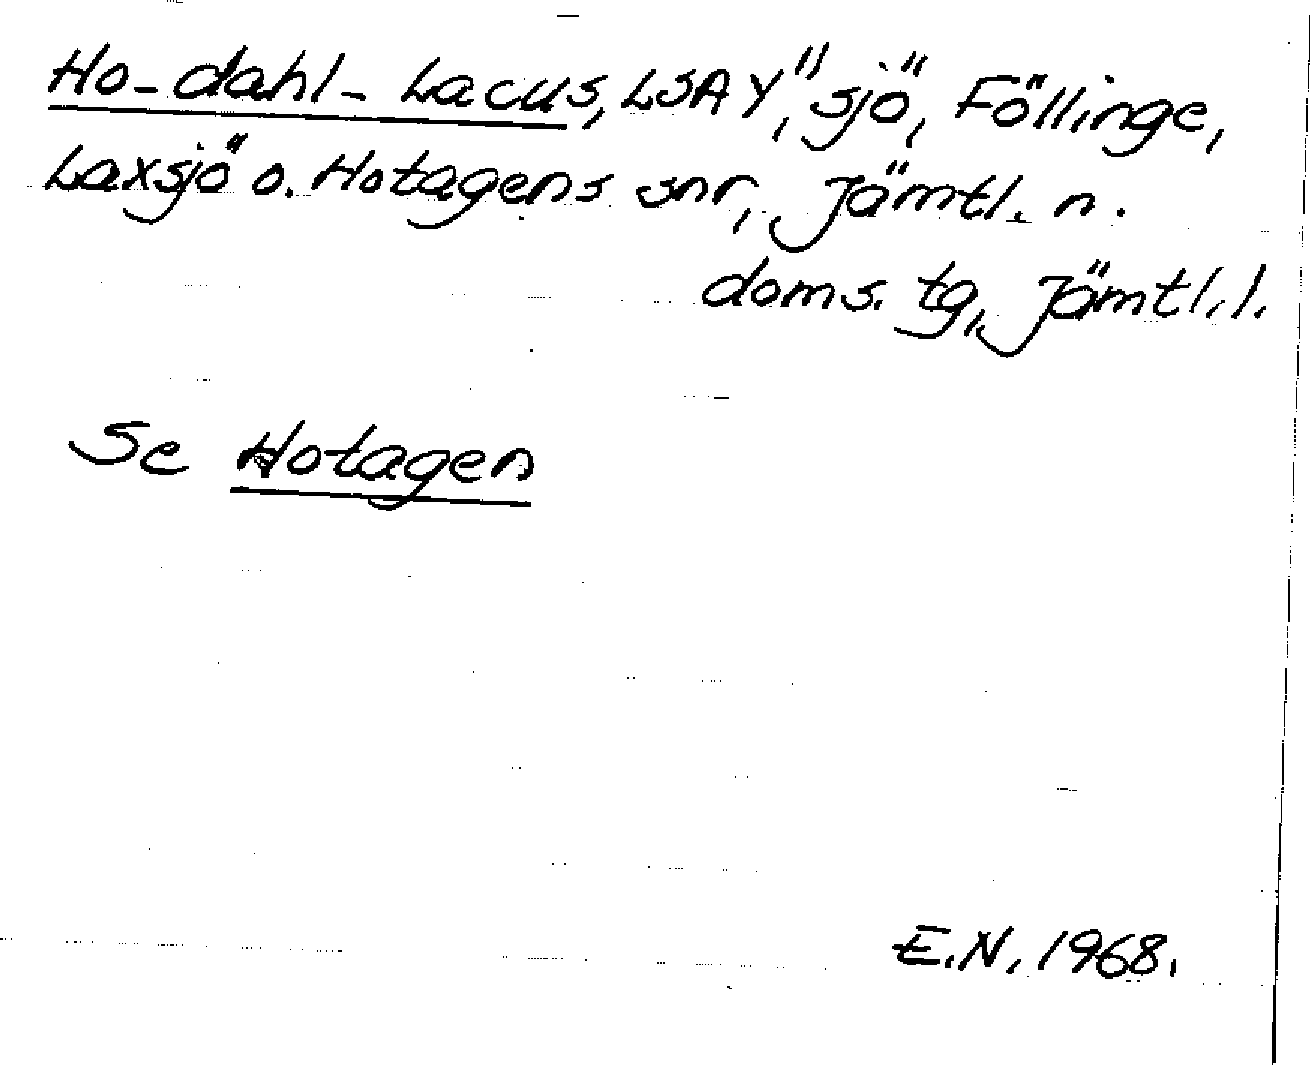 Ho-dahl-Lacus, LSAY", sjö, Föllinge,
Laxsjö o. Hotagens snr, Jämtl. n.
doms. tg, Jämtl. l.
Se Hotagen
E.N. 1968.